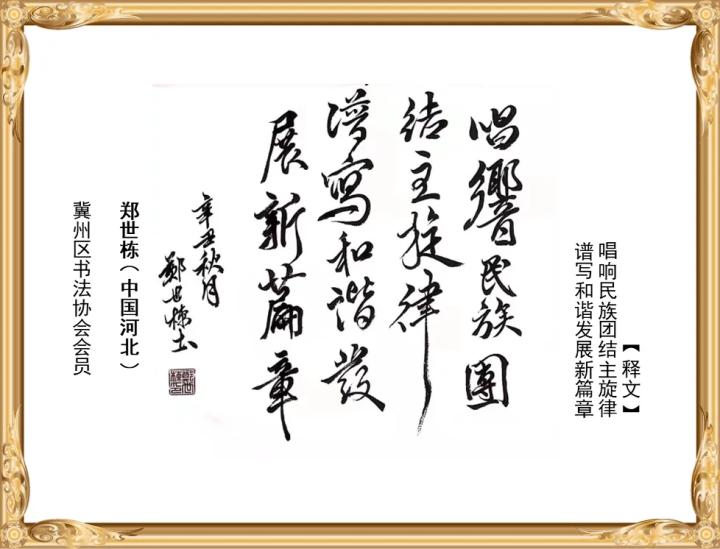 【释文】
唱响民族团结主旋律
谱写和谐发展新篇章
唱響民族團
结主旋律
谱寫和谐發
展新篇章
辛丑秋月
郑世栋书
郑世栋（中国河北）
冀州区书法协会会员